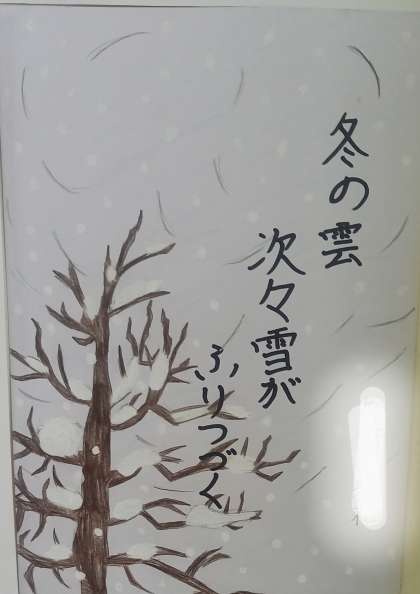 冬の雲
次々雪が
ふりつづく